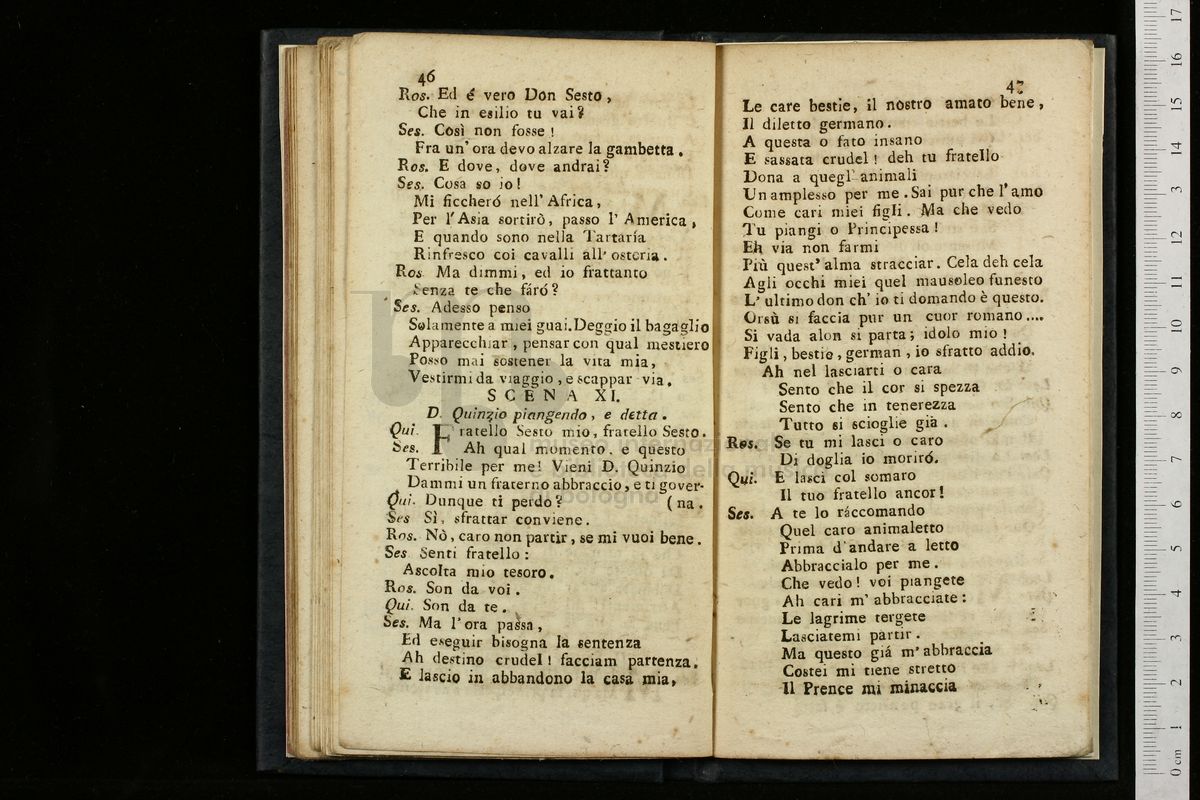 46
Ros. Ed é vero Don Sesto,
Che in esilio tu vai?
Ses. Così non fosse!
Fra un' ora devo alzare la gambetta.
Ros. E dove, dove andrai?
Ses. Cosa so io!
Mi ficcheró nell' Africa,
Per l'Asia sortirò, passo l' America,
E quando sono nella Tartaría
Rinfresco coi cavalli all' osteria.
Ros Ma dimmi, ed io frattanto
Senza te che fáró?
Ses. Adesso penso
Solamente a miei guai. Deggio il bagaglio
Apparecchiar, pensar con qual mestiero
Posso mai sostener la vita mia,
Vestirmi da viaggio, e scappar via.
SCENA XI.
D. Quinzio piangendo, e detta.
Qui. Fratello Sesto mio, fratello Sesto.
Ses. Ah qual momento. e questo
Terribile per me! Vieni D. Quinzio
Dammi un fraterno abbraccio, e ti gover-
Qui. Dunque ti perdo? (na.
Ses Sì, sfrattar conviene.
Ros. Nò, caro non partir, se mi vuoi bene.
Ses Senti fratello:
Ascolta mio tesoro.
Ros. Son da voi.
Qui. Son da te.
Ses. Ma l'ora passa,
Ed eseguir bisogna la sentenza
Ah destino crudel! facciam partenza.
E lascio in abbandono la casa mia,
47
Le care bestie, il nostro amato bene,
Il diletto germano.
A questa o fato insano
E sassata crudel! deh tu fratello
Dona a quegl' animali
Un amplesso per me. Sai pur che l'amo
Come cari miei figli. Ma che vedo
Tu piangi o Principessa!
Eh via non farmi
Più quest' alma stracciar. Cela deh cela
Agli occhi miei quel mausoleo funesto
L' ultimo don ch' io ti domando è questo.
Orsù si faccia pur un cuor romano....
Si vada alon si parta; idolo mio!
Figli, bestie, german, io sfratto addio.
Ah nel lasciarti o cara
Sento che il cor si spezza
Sento che in tenerezza
Tutto si scioglie già.
Ros. Se tu mi lasci o caro
Di doglia io moriró.
Qui. E lasci col somaro
Il tuo fratello ancor!
Ses. A te lo ráccomando
Quel caro animaletto
Prima d'andare a letto
Abbraccialo per me.
Che vedo! voi piangete
Ah cari m' abbracciate:
Le lagrime tergete
Lasciatemi partir.
Ma questo giá m'abbraccia
Costei mi tiene stretto
Il Prence mi minaccia
museo internazionale
e biblioteca della musica
di bologna
0 cm 1 2 3 4 5 6 7 8 9 10 11 12 13 14 15 16 17